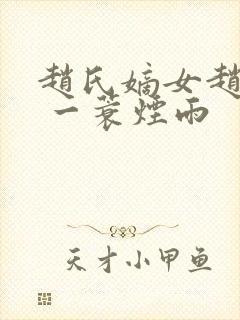 趙氏嫡女趙
一蓑煙雨
天才小甲鱼